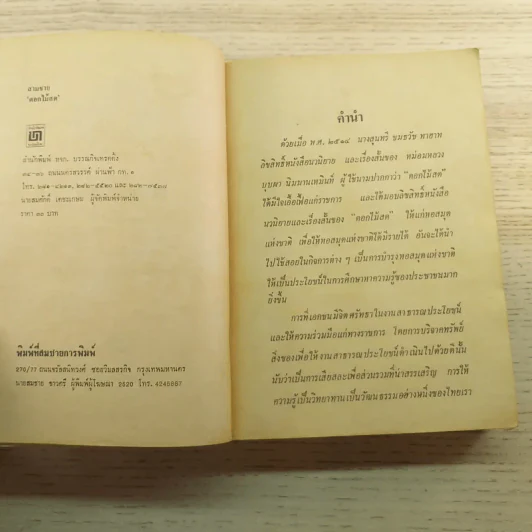 สามชาย
"ดอกไม้สด"
สำนักพิมพ์ หจก. บรรณกิจเทรดดิ้ง
๓๔-๓๖ ถนนนครสวรรค์ ผ่านฟ้า กท. ๑
โทร.
ราคา ๓๐ บาท
พิมพ์ที่สมชายการพิมพ์
270/77 ถนนจรัลสนิทวงศ์ ซอยวัดสุทธาวาส กรุงเทพมหานคร
นายสมชาย ผู้พิมพ์ผู้โฆษณา 2520 โทร. 4240867
คำนำ
ด้วยเมื่อ พ.ศ. ๒๕๑๔ นางสุนทรี
ลิขสิทธิ์หนังสือนวนิยาย และเรื่องสั้นของ หม่อมหลวง
บุบผา นิมมานเหมินท์ ผู้ใช้นามปากกาว่า "ดอกไม้สด"
ได้มีใจเอื้อเฟื้อแก่ราชการ และได้มอบลิขสิทธิ์หนังสือ
นวนิยายและเรื่องสั้นของ "ดอกไม้สด" ให้แก่หอสมุด
แห่งชาติ เพื่อให้หอสมุดแห่งชาติได้มีรายได้ อันจะได้นำ
ไปใช้สอยในกิจการต่าง ๆ เป็นการบำรุงหอสมุดแห่งชาติ
ให้เป็นประโยชน์ในการศึกษาหาความรู้ของประชาชนมาก
ยิ่งขึ้น
การที่เอกชนมีจิตศรัทธาในงานสาธารณประโยชน์
และให้ความร่วมมือแก่ทางราชการ โดยการบริจาคทรัพย์
สิ่งของเพื่อให้งานสาธารณประโยชน์ดำเนินไปด้วยดีนั้น
นับว่าเป็นการเสียสละเพื่อส่วนรวมที่น่าสรรเสริญ การให้
ความรู้เป็นวิทยาทานเป็นวัฒนธรรมอย่างหนึ่งของไทยเรา